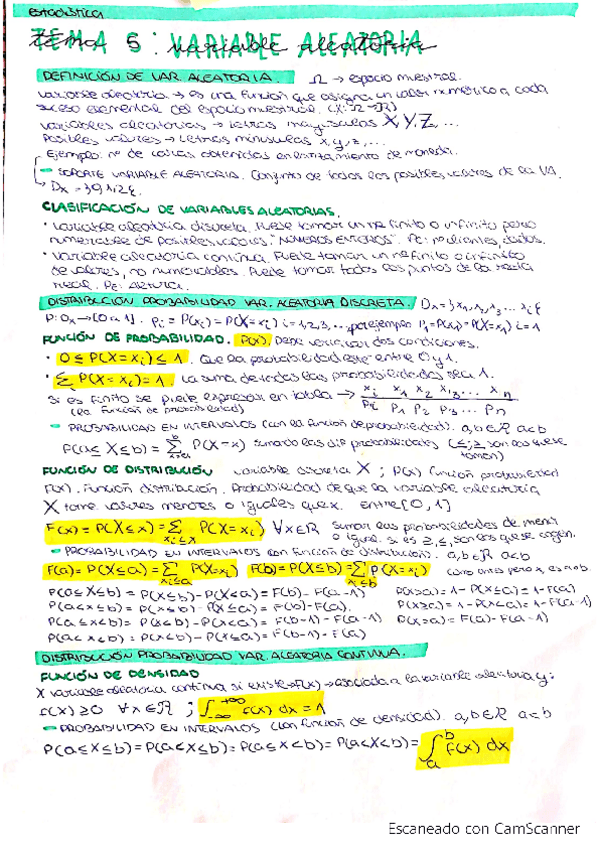 estadística
TEMA 5: VARIABLE ALEATORIA
DEFINICIÓN DE VAR. ALEATORIA. Ω → espacio muestral.
variable aleatoria → es una función que asigna un valor numérico a cada
suceso elemental del espacio muestral. (X: Ω → R)
variables aleatorias → letras mayúsculas X, Y, Z, ...
Posibles valores → letras minúsculas x, y, z, ...
Ejemplo: nº de caras obtenidas en lanzamiento de moneda.
- SOPORTE VARIABLE ALEATORIA. Conjunto de todos los posibles valores de la VA.
CLASIFICACIÓN DE VARIABLES ALEATORIAS.
• variable aleatoria discreta. Puede tomar un nº finito o infinito pero
numerable de posibles valores. "NÚMEROS ENTEROS". Pe: nº clientes,
• variable aleatoria continua. Puede tomar un nº finito o infinito
de valores, no numerables. Puede tomar todos los puntos de la recta
real. Pe: Altura.
DISTRIBUCIÓN PROBABILIDAD VAR. ALEATORIA DISCRETA.
Pi = P(xi) = P(X = xi) i = 1,2,3,... por ejemplo P1 = P(x1) = P(X = x1) i = 1
FUNCIÓN DE PROBABILIDAD. P(x). Debe verificar dos condiciones.
• 0 ≤ P(X = xi) ≤ 1. Que la probabilidad esté entre 0 y 1.
• Σ P(X = xi) = 1. La suma de todas las probabilidades sea 1.
Si es finito se puede expresar en tabla → xi x1 x2 x3 ... xn
(la función de probabilidad) Pi P1 P2 P3 ... Pn
- PROBABILIDAD EN INTERVALOS (con la función de probabilidad). a, b ∈ R a<b
P(a ≤ X ≤ b) = Σ P(X = x) sumando las dif probabilidades (≤, ≥ son los que se
toman)
FUNCIÓN DE DISTRIBUCIÓN variable discreta X ; P(x) función probabilidad
F(x). Función distribución. Probabilidad de que la variable aleatoria
X tome valores menores o iguales que x. entre [0, 1]
F(x) = P(X ≤ x) = Σ xi ≤ x P(X = xi) ∀x ∈ R sumar las probabilidades de menor
o igual. si es ≥, ≤, son los que se cogen.
- PROBABILIDAD EN INTERVALOS (con función de distribución). a, b ∈ R a<b
F(a) = P(X ≤ a) = Σ xi ≤ a P(X = xi) F(b) = P(X ≤ b) = Σ xi ≤ b P(X = xi)
P(a ≤ X ≤ b) = P(X ≤ b) - P(X < a) = F(b) - F(a - 1) P(X > a) = 1 - P(X ≤ a) = 1 - F(a)
P(a < X ≤ b) = P(X ≤ b) - P(X ≤ a) = F(b) - F(a). P(X ≥ a) = 1 - P(X < a) = 1 - F(a - 1)
P(a ≤ X < b) = P(X < b) - P(X < a) = F(b - 1) - F(a - 1) P(X = a) = F(a) - F(a - 1)
P(a < X < b) = P(X < b) - P(X ≤ a) = F(b - 1) - F(a)
DISTRIBUCIÓN PROBABILIDAD VAR. ALEATORIA CONTINUA.
FUNCIÓN DE DENSIDAD
X variable aleatoria continua si existe → f(x) → asociada a la variable aleatoria y:
f(x) ≥ 0 ∀x ∈ R ; ∫-∞+∞ f(x) dx = 1
- PROBABILIDAD EN INTERVALOS (con función de densidad). a, b ∈ R a<b
P(a ≤ X ≤ b) = P(a < X ≤ b) = P(a ≤ X < b) = P(a < X < b) = ∫ab f(x) dx
Escaneado con CamScanner